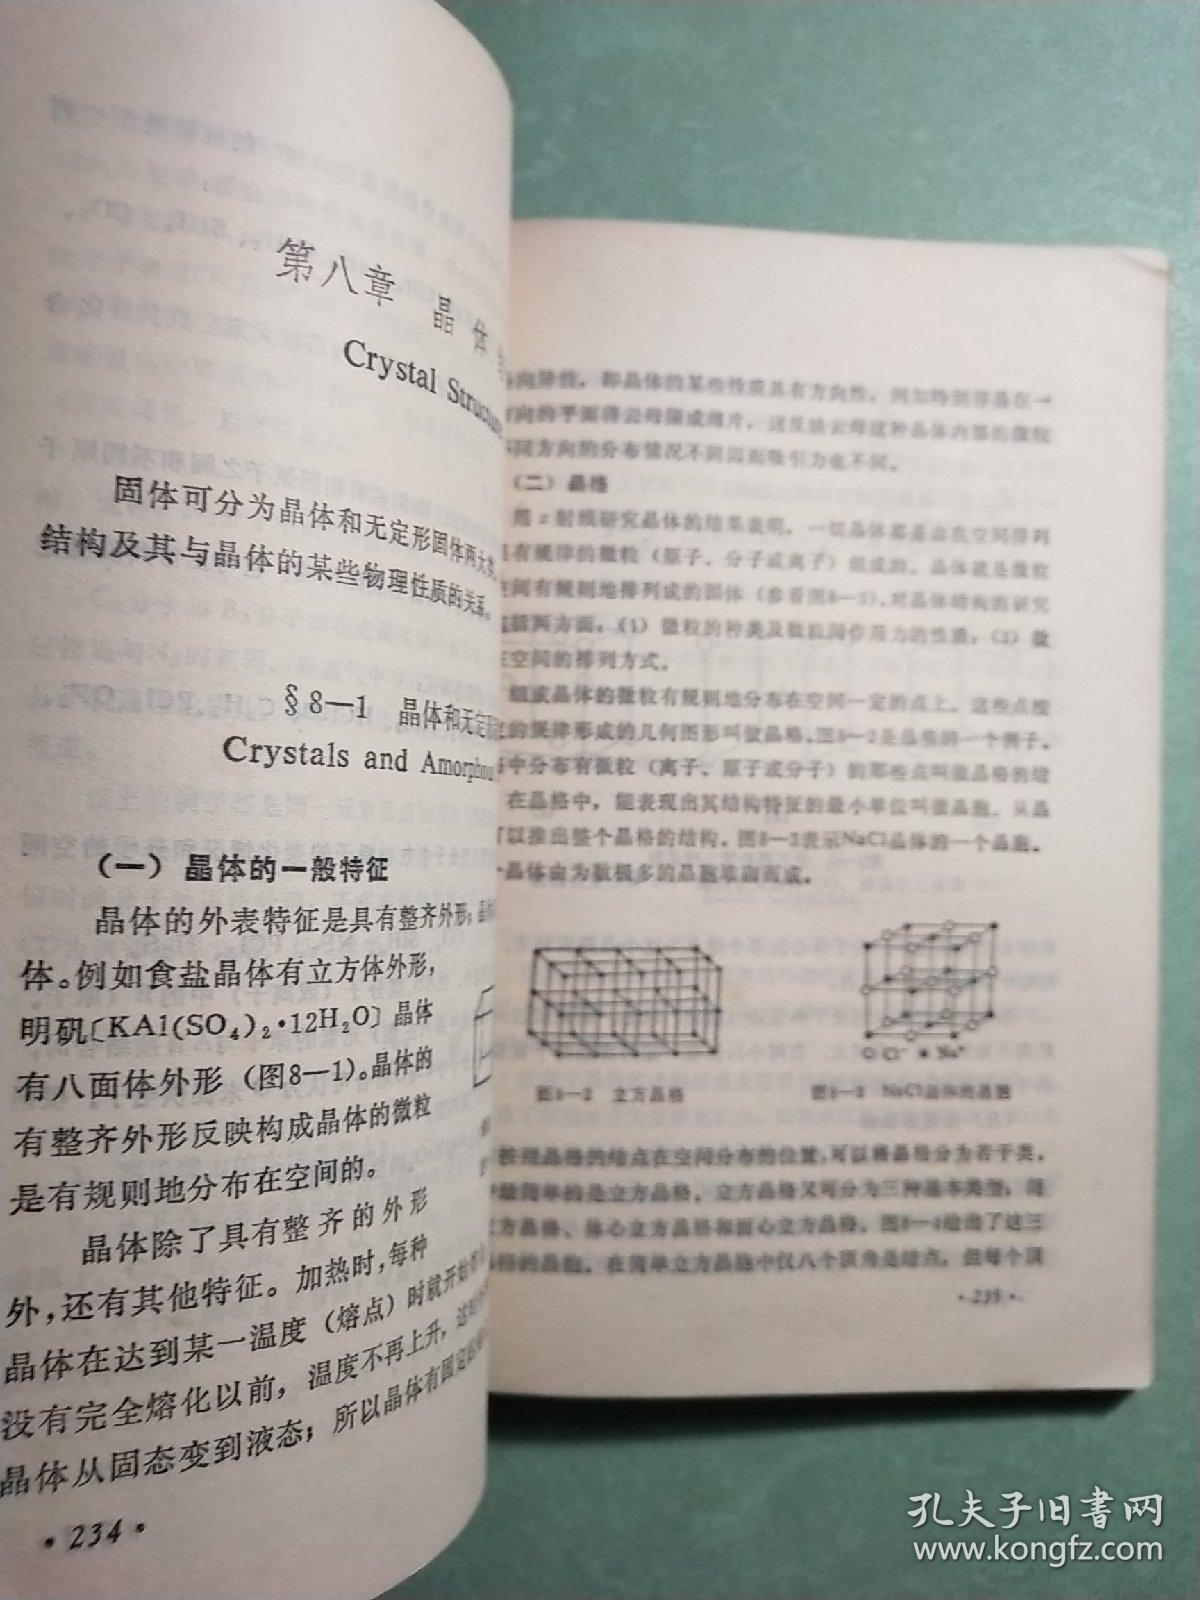 第八章 晶体
Crystal Structure
固体可分为晶体和无定形固体两大
结构及其与晶体的某些物理性质的关系。
§8—1 晶体和无定
Crystals and Amorphou
(一) 晶体的一般特征
晶体的外表特征是具有整齐外形；
体。例如食盐晶体有立方体外形，
明矾〔KAl(SO₄)₂·12H₂O〕晶体
有八面体外形（图8—1）。晶体的
有整齐外形反映构成晶体的微粒
是有规则地分布在空间的。
晶体除了具有整齐的外形
外，还有其他特征。加热时，每种
晶体在达到某一温度（熔点）时就开始
没有完全熔化以前，温度不再上升，
晶体从固态变到液态；所以晶体有固定
·234·
向异性，即晶体的某些性质具有方向性，例如特别容易在一
向的平面将云母撕成薄片，这反映云母这种晶体内部的微粒
不同方向的分布情况不同因而吸引力也不同。
(二) 晶格
用x射线研究晶体的结果表明，一切晶体都是由在空间排列
具有规律的微粒（原子、分子或离子）组成的。晶体就是微粒
空间有规则地排列成的固体（参看图8—3）。对晶体结构的研究
包括两方面：(1) 微粒的种类及微粒间作用力的性质；(2) 微
在空间的排列方式。
组成晶体的微粒有规则地分布在空间一定的点上。这些点按
的规律形成的几何图形叫做晶格。图8—2是晶格的一个例子。
中分布有微粒（离子、原子或分子）的那些点叫做晶格的结
在晶格中，能表现出其结构特征的最小单位叫做晶胞。从晶
可以推出整个晶格的结构。图8—3表示NaCl晶体的一个晶胞。
晶体由为数极多的晶胞堆砌而成。
○ Cl⁻ • Na⁺
图8—2 立方晶格
图8—3 NaCl晶体的晶胞
按照晶格的结点在空间分布的位置，可以将晶格分为若干类。
最简单的是立方晶格。立方晶格又可分为三种基本类型：简
立方晶格、体心立方晶格和面心立方晶格。图8—4给出了这三
晶格的晶胞。在简单立方晶胞中仅八个顶角是结点，但每个顶
·235·
孔夫子旧书网
www.kongfz.com